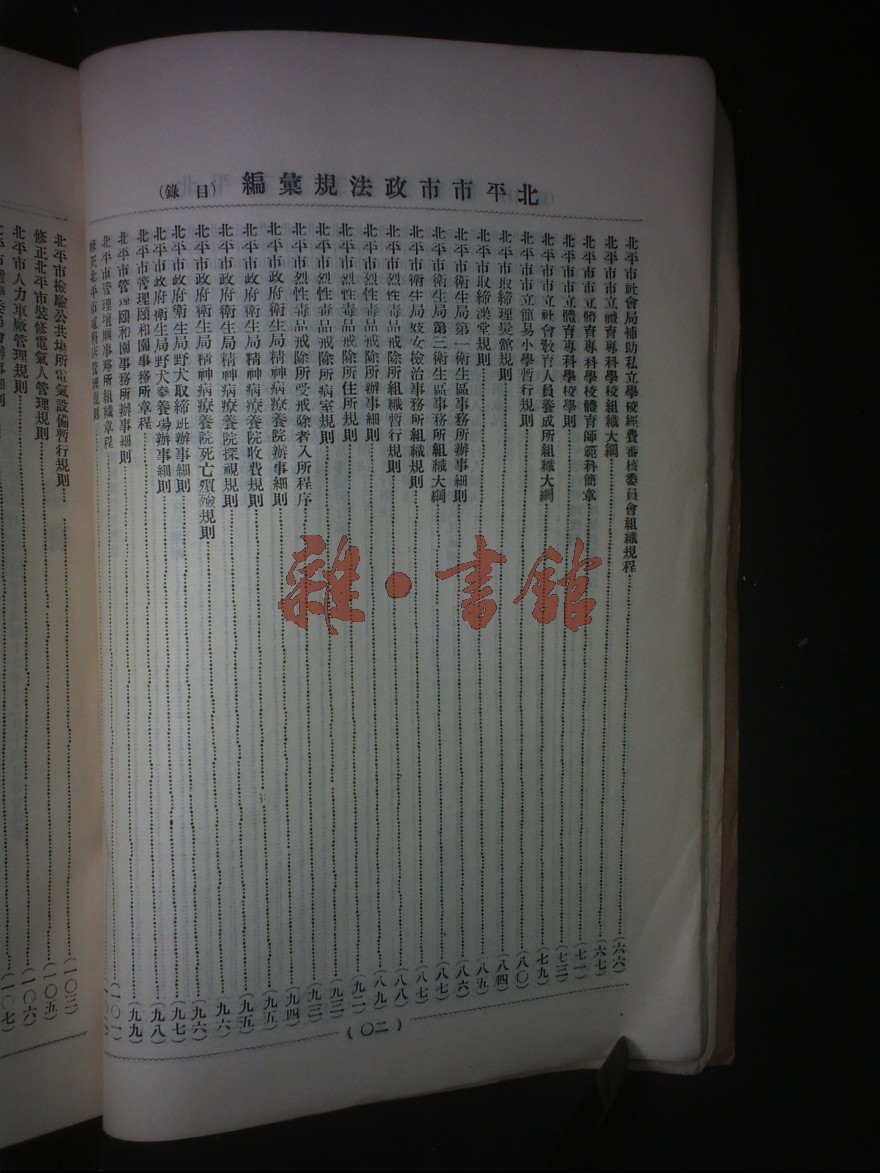 北平市市政法規彙編 (目錄)
北平市社會局補助私立學校經費審核委員會組織規程……(六六)
北平市市立體育專科學校組織大綱……(六七)
北平市市立體育專科學校體育師範科簡章……(七一)
北平市市立體育專科學校學則……(七三)
北平市市立社會教育人員養成所組織大綱……(七九)
北平市市立簡易小學暫行規則……(八〇)
北平市取締理髮館規則……(八四)
北平市取締澡堂規則……(八五)
北平市衛生局第一衛生區事務所辦事細則……(八六)
北平市衛生局第三衛生區事務所組織大綱……(八七)
北平市衛生局妓女檢治事務所組織規則……(八七)
北平市烈性毒品戒除所組織暫行規則……(八八)
北平市烈性毒品戒除所辦事細則……(八九)
北平市烈性毒品戒除所住所規則……(九二)
北平市烈性毒品戒除所病室規則……(九三)
北平市烈性毒品戒除所受戒除者入所程序……(九三)
北平市政府衛生局精神病療養院辦事細則……(九四)
北平市政府衛生局精神病療養院收費規則……(九五)
北平市政府衛生局精神病療養院探視規則……(九五)
北平市政府衛生局精神病療養院死亡殯殮規則……(九六)
北平市政府衛生局野犬取締班辦事細則……(九六)
北平市政府衛生局野犬豢養場辦事細則……(九七)
北平市管理頤和園事務所章程……(九八)
北平市管理頤和園事務所辦事細則……(九九)
北平市管理壇廟事務所組織章程……(一〇一)
(二〇)
北平市檢驗公共場所電氣設備暫行規則……(一〇三)
修正北平市裝修電氣人管理規則……(一〇五)
北平市人力車廠管理規則……(一〇六)
(一〇七)
雜·書館